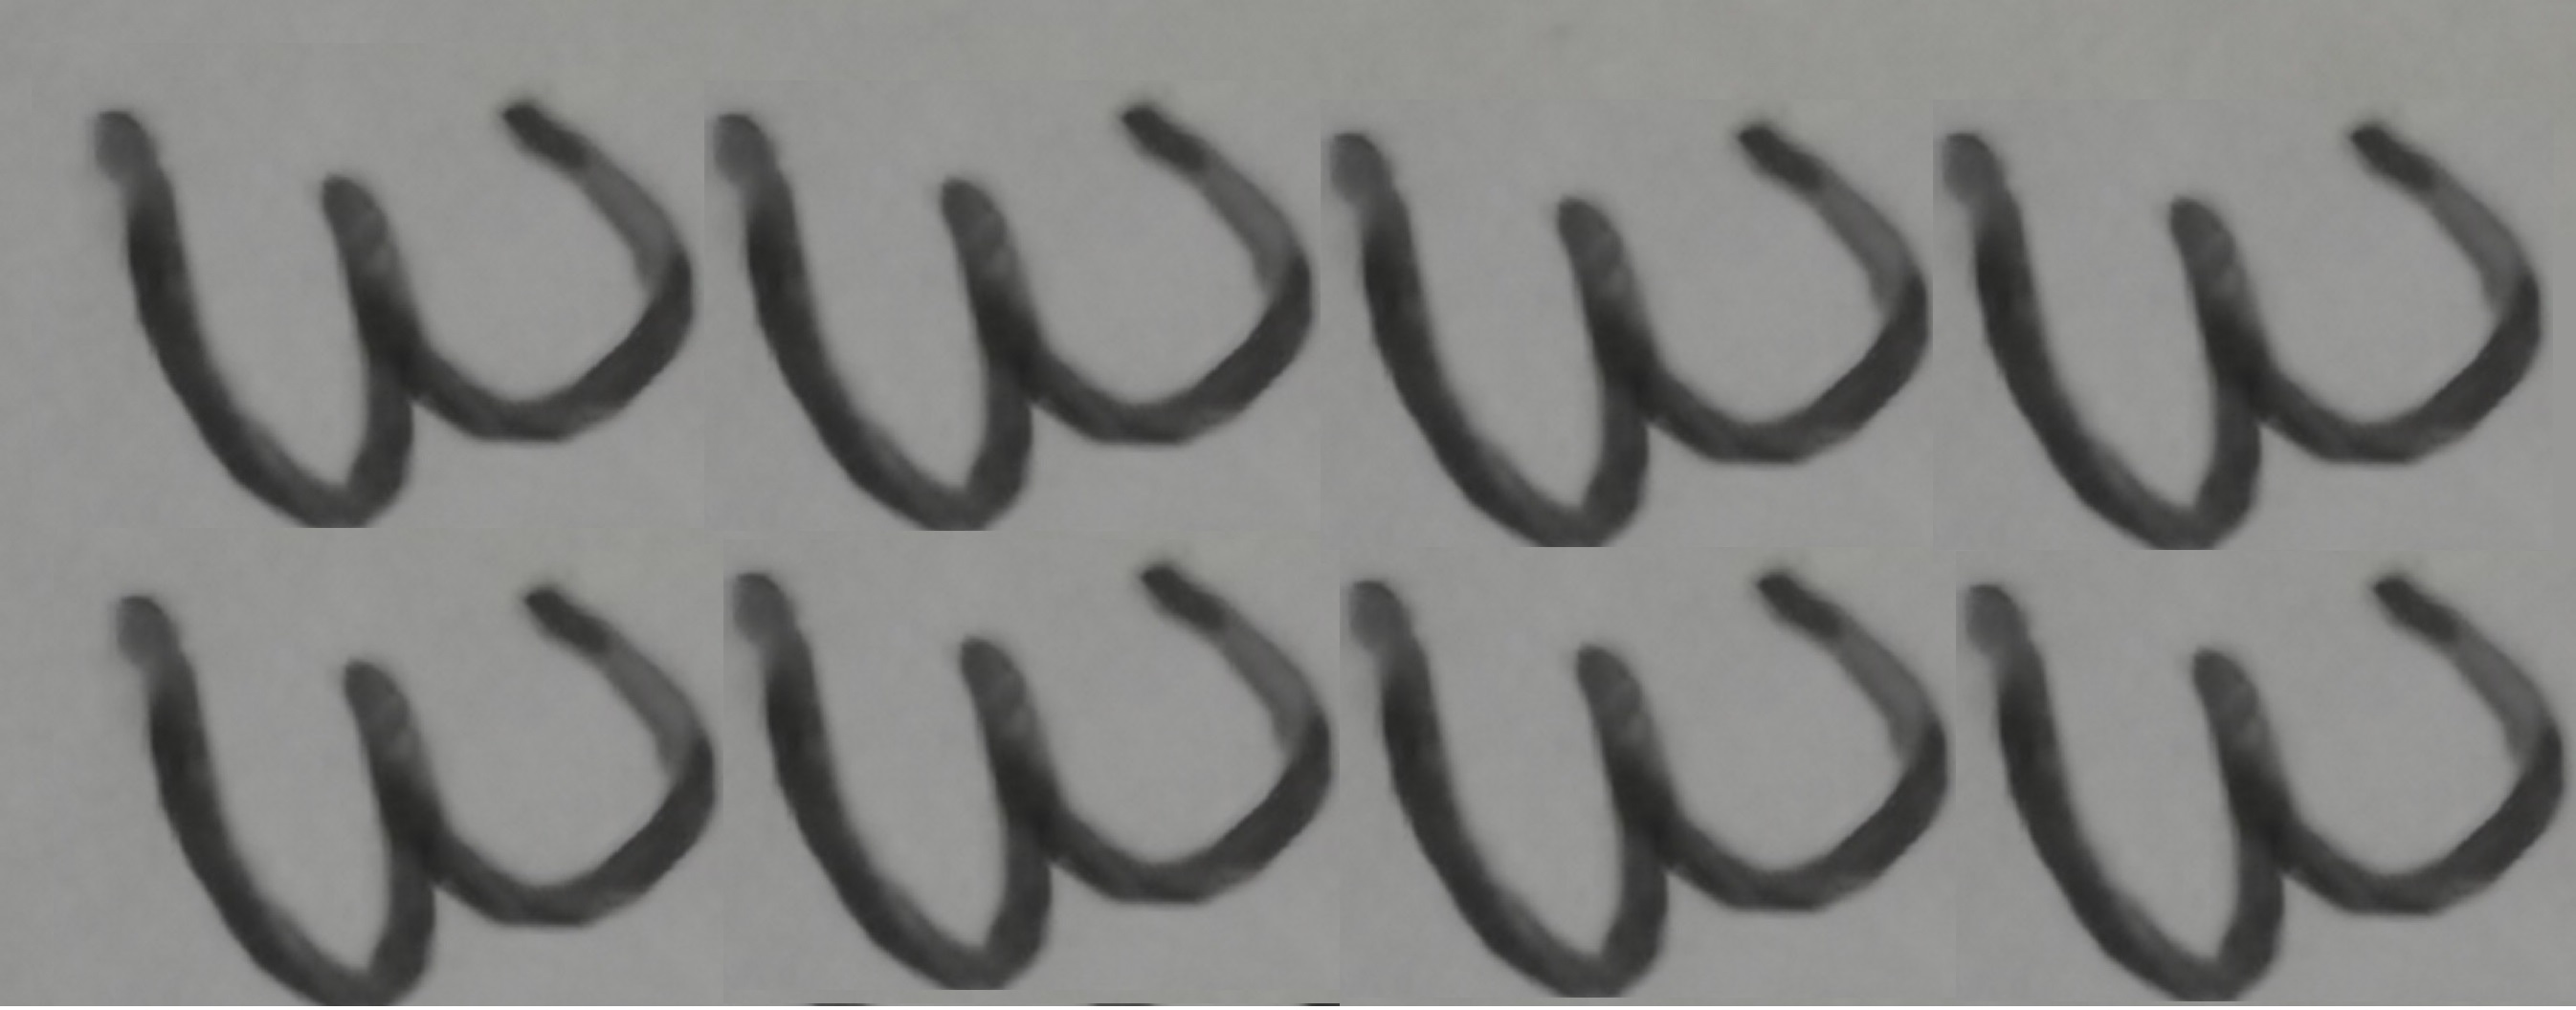 wwww
wwww